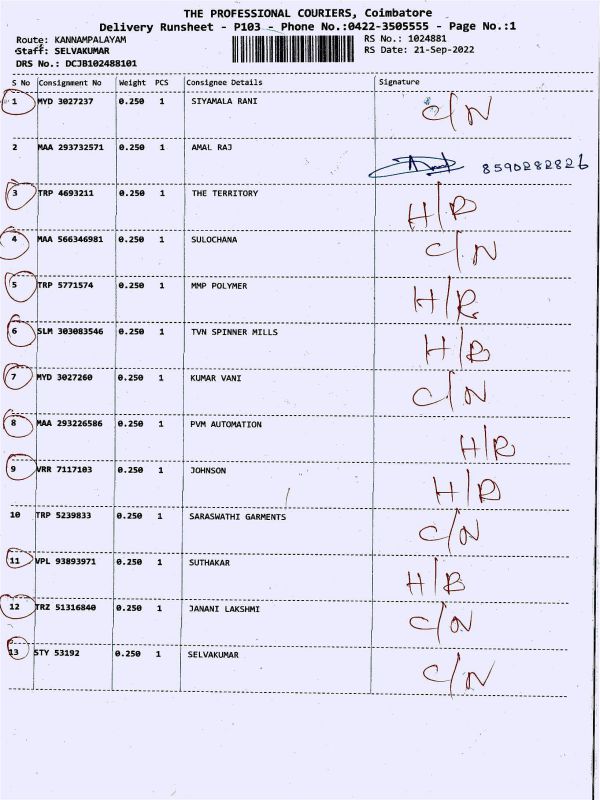 THE PROFESSIONAL COURIERS, Coimbatore
Delivery Runsheet - P103 - Phone No.:0422-3505555 - Page No.:1
Route: KANNAMPALAYAM RS No.: 1024881
Staff: SELVAKUMAR RS Date: 21-Sep-2022
DRS No.: DCJB102488101
S No Consignment No Weight PCS Consignee Details Signature
1 MYD 3027237 0.250 1 SIYAMALA RANI C/N
2 MAA 293732571 0.250 1 AMAL RAJ 8590282826
3 TRP 4693211 0.250 1 THE TERRITORY H/R
4 MAA 566346981 0.250 1 SULOCHANA C/N
5 TRP 5771574 0.250 1 MMP POLYMER H/R
6 SLM 303083546 0.250 1 TVN SPINNER MILLS H/R
7 MYD 3027260 0.250 1 KUMAR VANI C/N
8 MAA 293226586 0.250 1 PVM AUTOMATION H/R
9 VRR 7117103 0.250 1 JOHNSON H/R
10 TRP 5239833 0.250 1 SARASWATHI GARMENTS C/N
11 VPL 93893971 0.250 1 SUTHAKAR H/R
12 TRZ 51316840 0.250 1 JANANI LAKSHMI C/N
13 STY 53192 0.250 1 SELVAKUMAR C/N